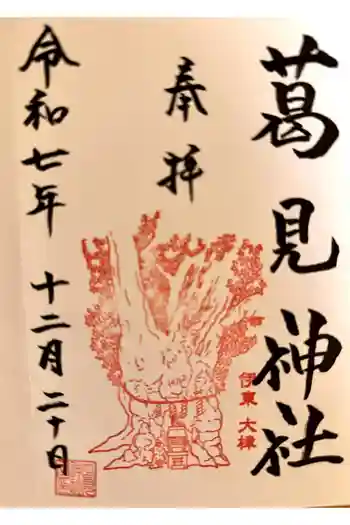 葛見神社
伊東 大樟
奉拝
令和七年 十二月 二十日